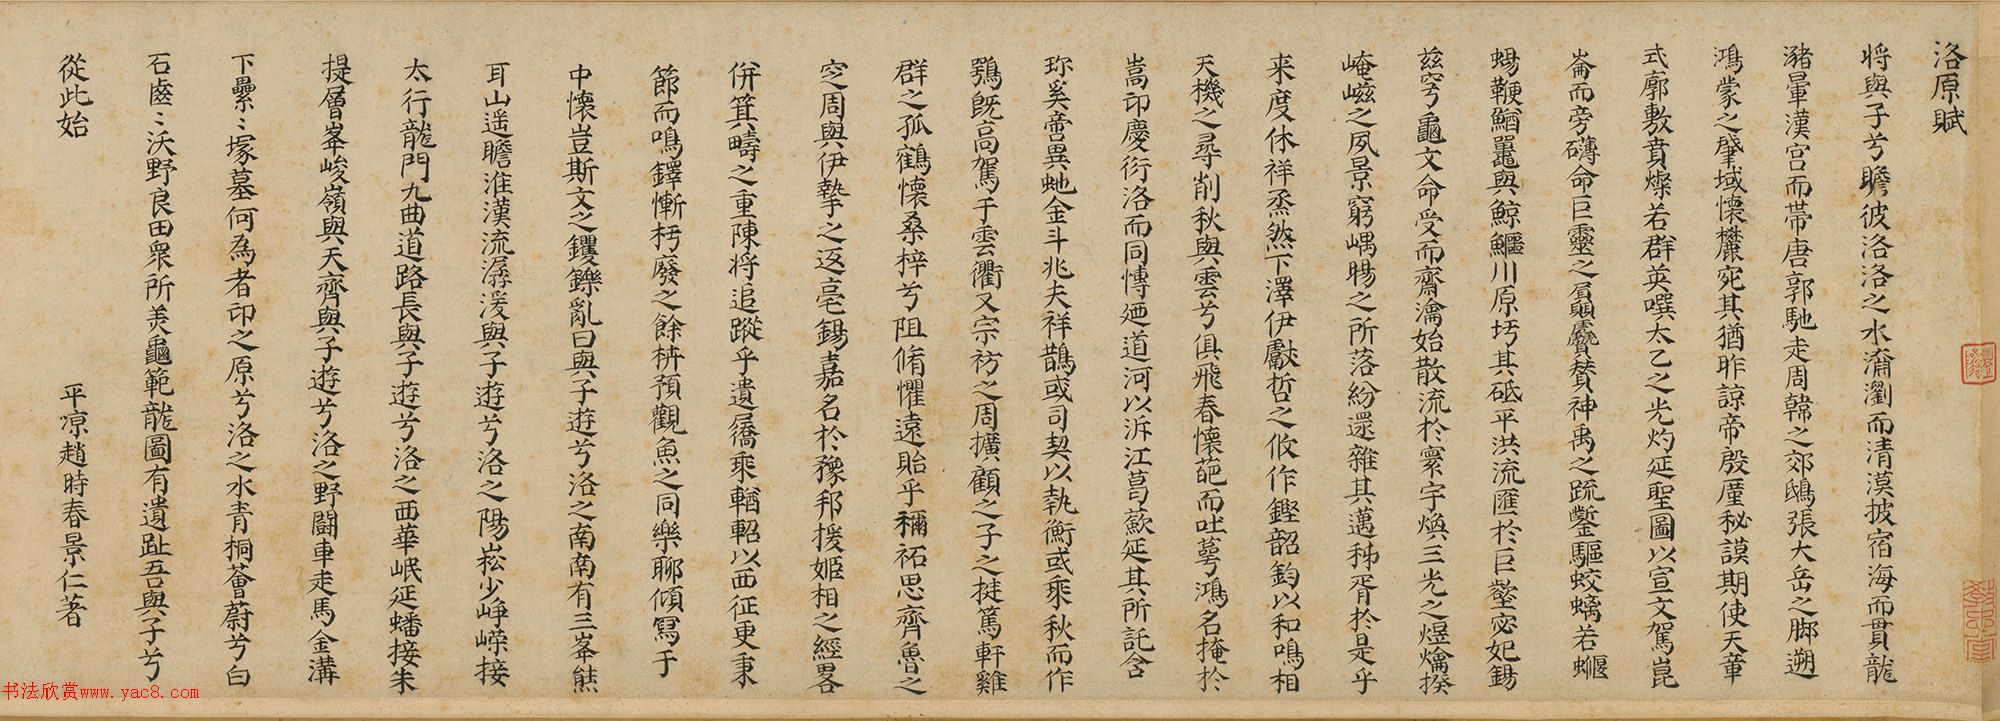 洛原賦
將與子兮瞻彼洛洛之水潏瀏而清漠披宿海而貫龍
豬暈漢宮而帶唐郭馳走周韓之郊鴟張大岳之腳遡
鴻蒙之肇域懷麓宛其猶昨諒帝殷厘秘謨期使天葦
式廓敷賁燦若群英噀太乙之光灼延聖圖以宣文駕崑
崙而旁礴命巨靈之屓贔贔贊神禹之疏鑿驅蛟螭若蝘
蜴鞭鰌鼉與鯨鱷川原圬其砥平洪流匯於巨壑宓妃錫
茲穹龜文命受而齋瀹始散流於寰宇煥三光之煜爚揆
崦嵫之夙景窮嵎暘之所落紛還雜其邁秭胥於是乎
来度休祥烝然下澤伊獻哲之攸作鏗韶鈞以和鳴相
天機之尋削秋與雲兮俱飛春懷葩而吐萼鴻名掩於
嵩卬慶衍洛而同愽廼道河以泝江葛蔽延其所託含
珎奚啻異虵金斗兆夫祥鵲或司契以執衡或乘秋而作
鶚既高駕于雲衢又宗祊之周擴顧之子之挺篤軒雞
群之孤鶴懷桑梓兮阻脩懼遠貽乎禰祏思齊魯之
窆周與伊摯之返亳錫嘉名於豫邦援姬相之經畧
併箕疇之重陳将追蹤乎遺屩乘輶軺以西征更秉
節而鳴鐸慚朽廢之餘枿預觀魚之同樂聊傾寫于
中懷豈斯文之钁鑠亂曰與子遊兮洛之南南有三峯熊
耳山遥瞻淮漢流潺湲與子遊兮洛之陽崧少崢嶸接
太行龍門九曲道路長與子遊兮洛之西華岷延蟠接朱
提層峯峻嶺與天齊與子遊兮洛之野鬬車走馬金溝
下纍〻塚墓何為者卬之原兮洛之水青桐薈蔚兮白
石齒〻沃野良田衆所羙龜範龍圖有遺趾吾與子兮
從此始
平凉趙時春景仁著
书法欣赏www.yac8.com